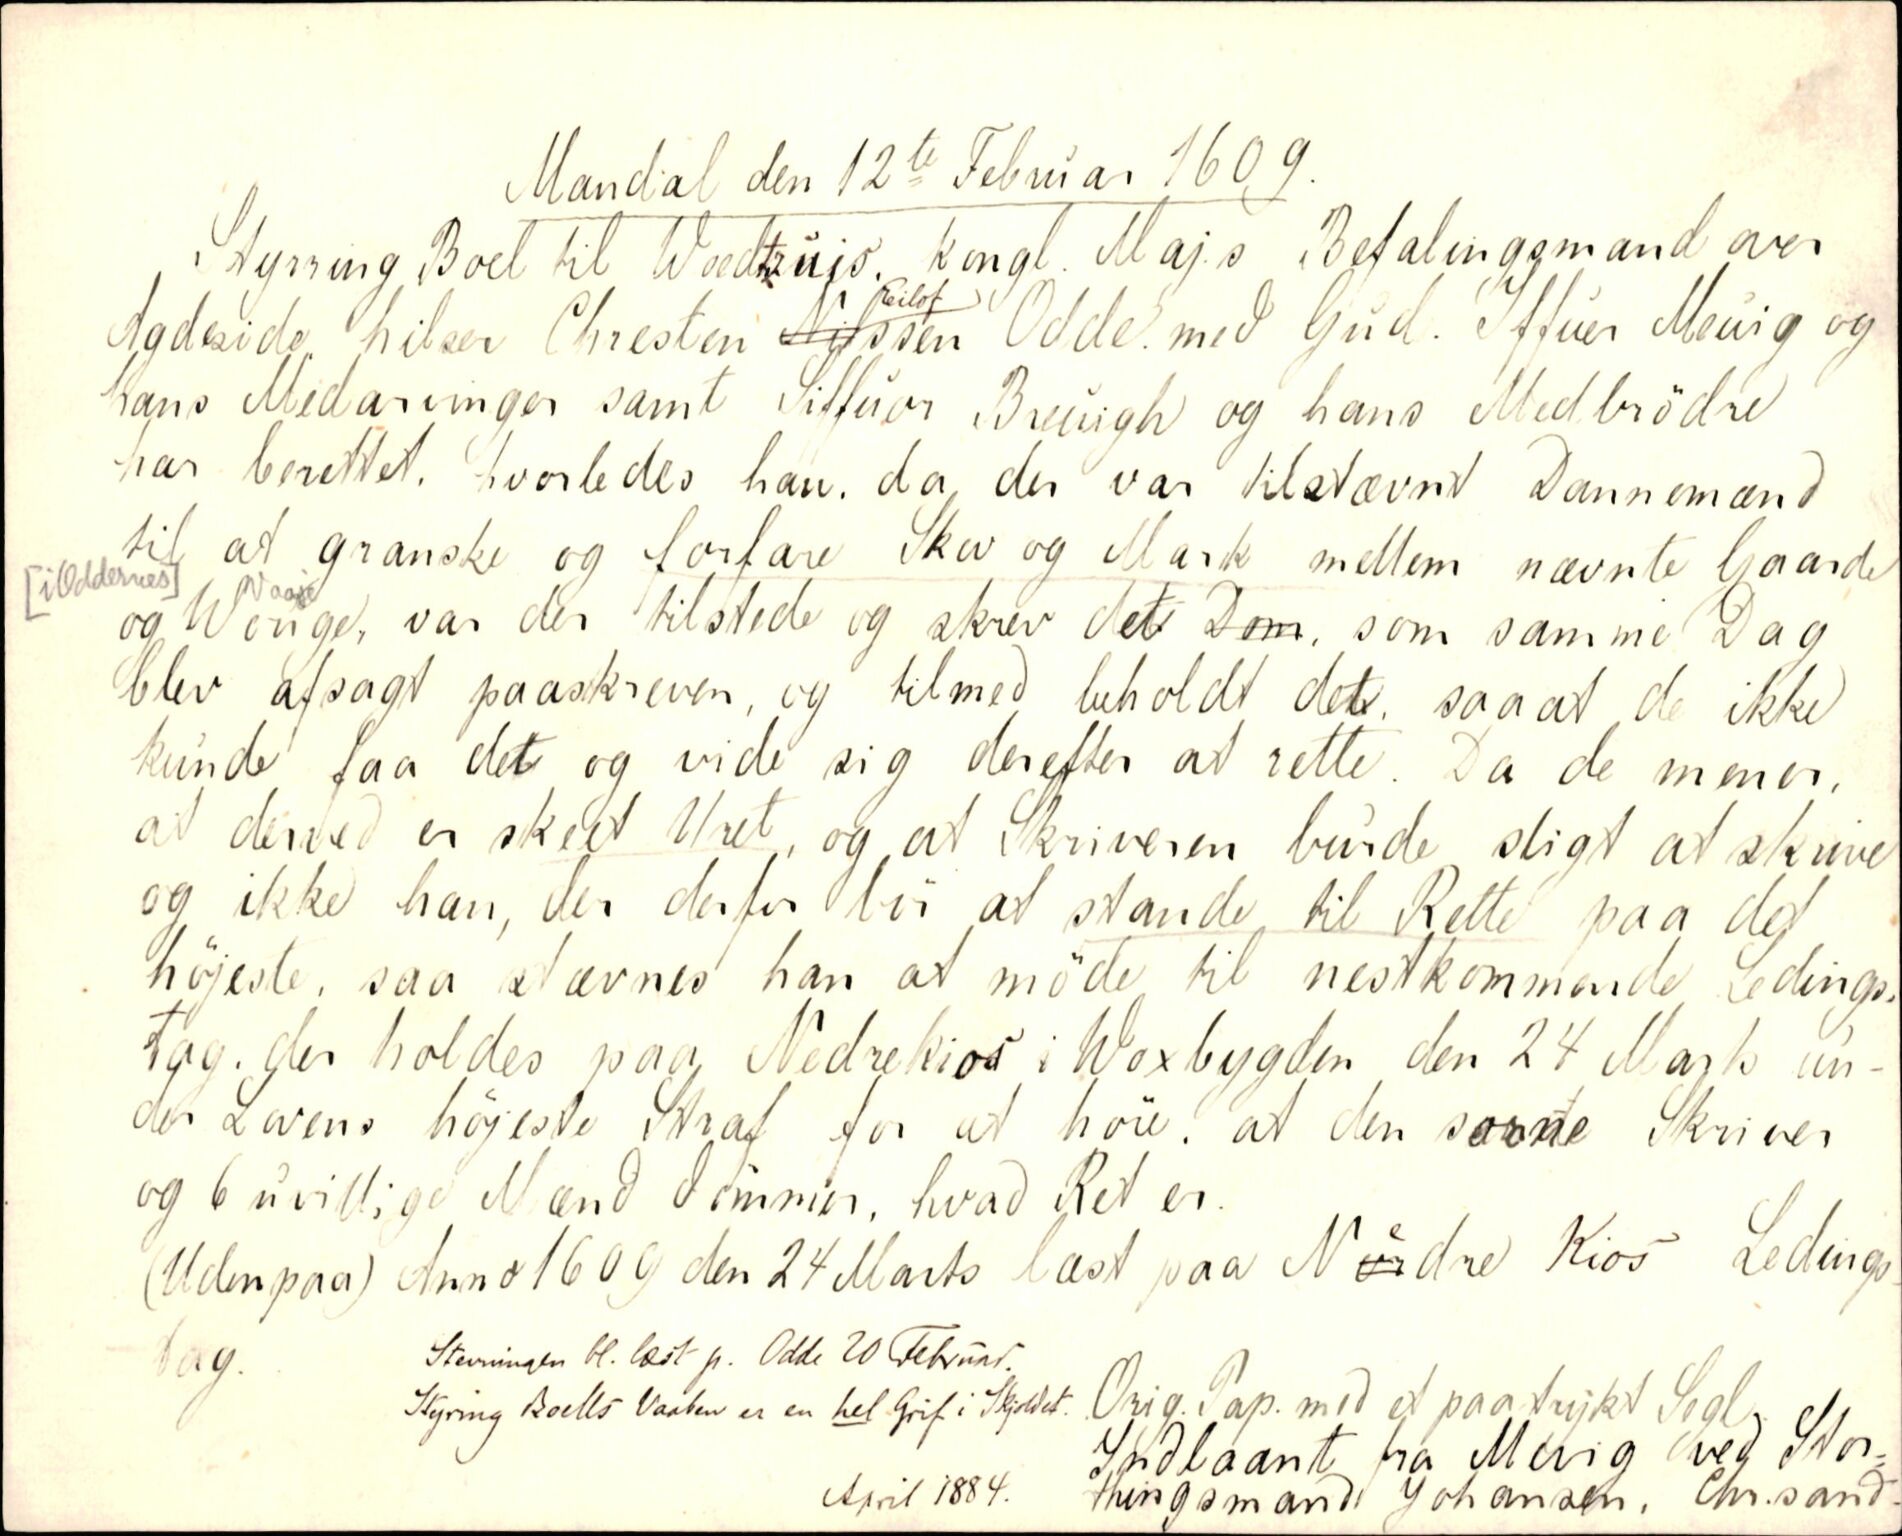 Mandal den 12te Februar 1609.
Styrring Boel til Woedtzuis, kongl. Maj.s Befalingsmand over
Agdeside hilser Chresten Nilssen Eilof Odde med Gud. Iffuer Meuig og
hans Medarvinger samt Siffuor Breuigh og hans Medbrödre
har berettet, hvorledes han, da der var tilstævnt Dannemænd
til at granske og forfare Skov og Mark mellem nævnte Gaarde
[i Oddernes] Vaage
og Wouge, var der tilstede og skrev det Dom, som samme Dag
blev afsagt paaskreven, og tilmed beholdt det, saaat de ikke
kunde faa det og vide sig derefter at rette. Da de mener,
at derved er skeet Uret, og at Skriveren burde sligt at skrive
og ikke han, der derfor bör at stande til Rette paa det
höjeste, saa stævnes han at möde til nestkommende Ledings-
tag, der holdes paa Nedrekios i Woxbygden den 24 Marts un-
der Lovens höjeste Straf for at höre, at den sorne Skriver
og 6 uvillige Mænd dömmer, hvad Ret er.
(Udenpaa) Anno 1609 den 24 Marts læst paa Nedre Kios Ledings-
tag.
Stevningen bl. læst p. Odde 20 Februar.
Styring Boells Vaaben er en hel Grif i Skjoldet.
Orig. Pap. med et paatrykt Segl.
Indlaant fra Mevig ved Stor-
thingsmand Johansen, Chr.sand-
April 1884.